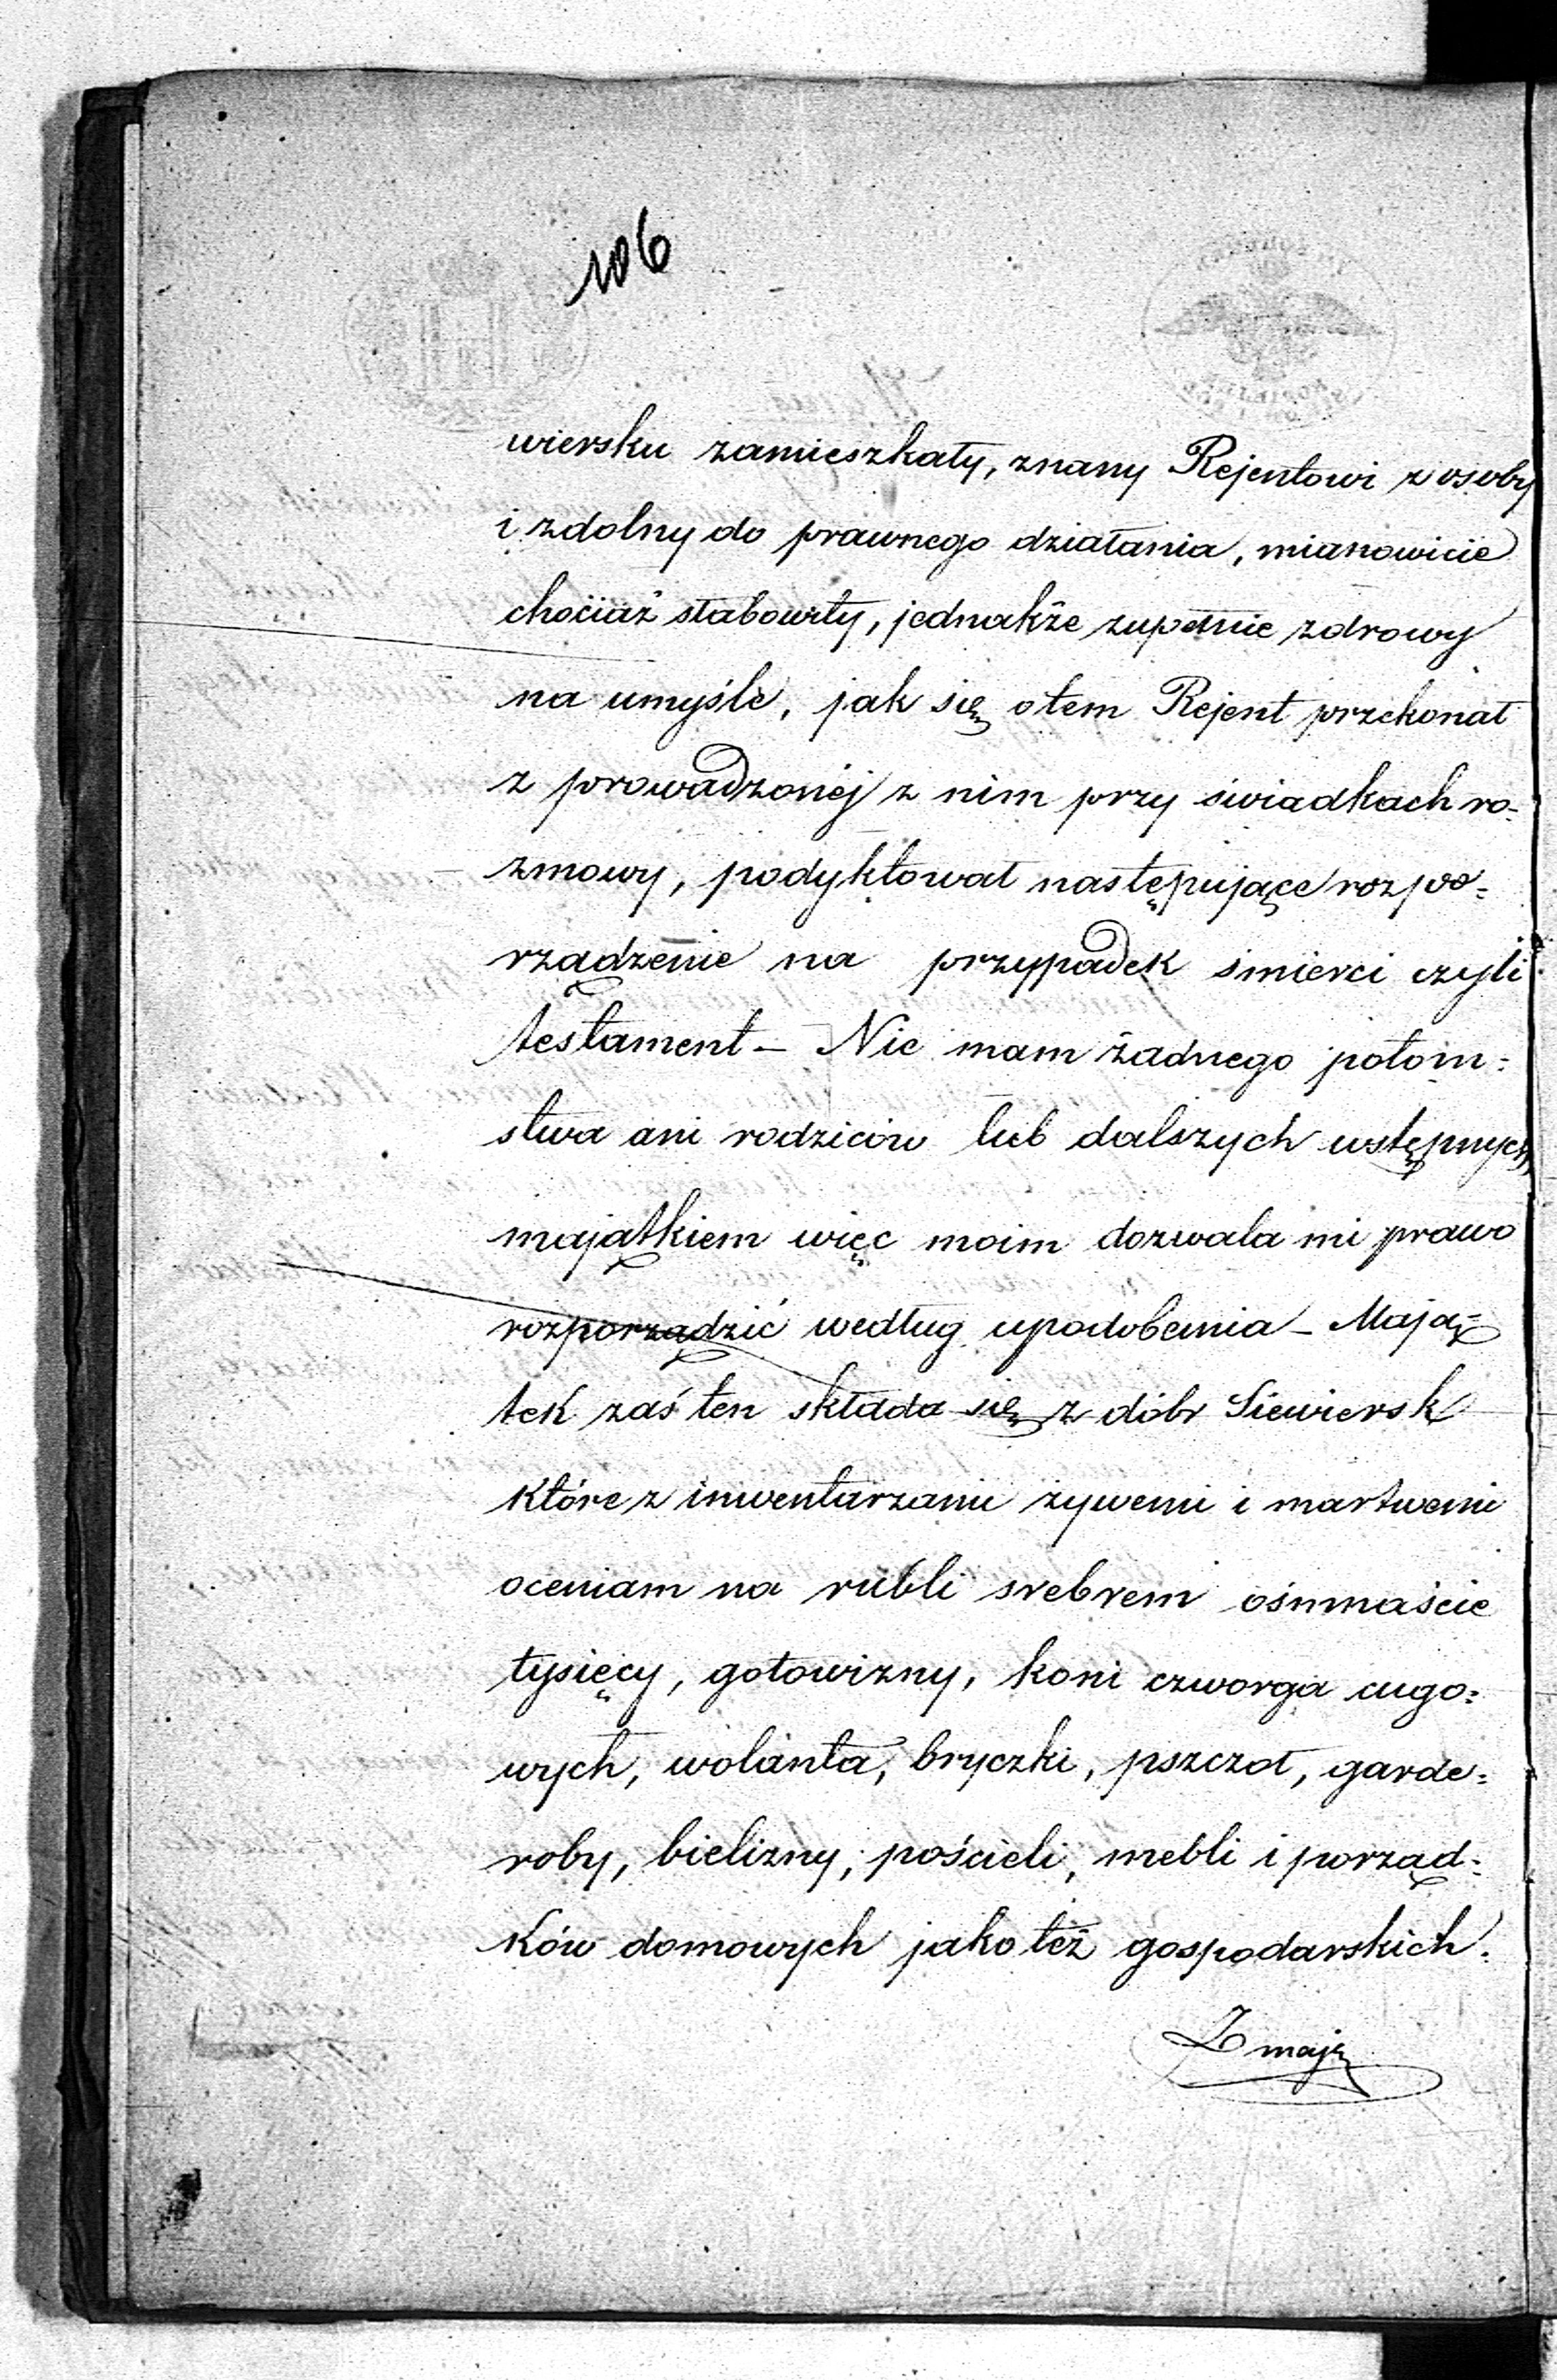 106
wiersku zamieszkały, znany Rejentowi z osoby
i zdolny do prawnego działania, mianowicie
chociaż słabowity, jednakże zupełnie zdrowy
na umyśle, jak się o tem Rejent przekonał
z prowadzonéj z nim przy świadkach ro-
zmowy, podyktował następujące rozpo=
rządzenie na przypadek śmierci czyli
testament – Nie mam żadnego potom=
stwa ani rodziców lub dalszych wstępnych,
majątkiem więc moim dozwala mi prawo
rozporządzić według upodobania – Mają=
tek zaś ten składa się z dóbr Siewiersk
które z inwentarzami żywemi i martwemi
oceniam na rubli srebrem ośmnaście
tysięcy, gotowizny, koni czworga cugo=
wych, wolanta, bryczki, pszczół, garde=
roby, bielizny, pościeli, mebli i porząd=
ków domowych jako też gospodarskich.
Z mają